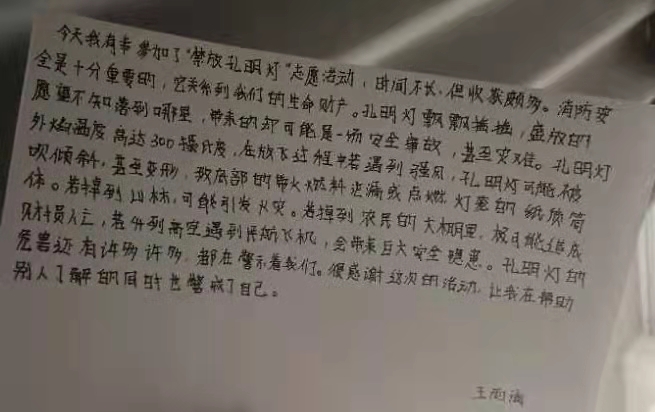 今天我有幸参加了“禁放孔明灯”志愿活动，时间不长，但收获颇多。消防安
全是十分重要的，它关系到我们的生命财产。孔明灯飘飘摇摇，盛放的
愿望不知落到哪里，带来的却可能是一场安全事故，甚至灾难。孔明灯
外焰温度高达300摄氏度，在放飞过程中若遇到强风，孔明灯可能被
吹倾斜，甚至变形，致底部的带火燃料泄漏或点燃灯罩的纸质筒
体。若掉到山林，可能引发火灾。若掉到农民的大棚里，极可能造成
财损人亡，若升到高空遇到民航飞机，会带来巨大安全隐患。孔明灯的
危害还有许多许多，都在警示着我们。很感谢这次的活动，让我在帮助
别人了解的同时也警戒了自己。
王雨涵